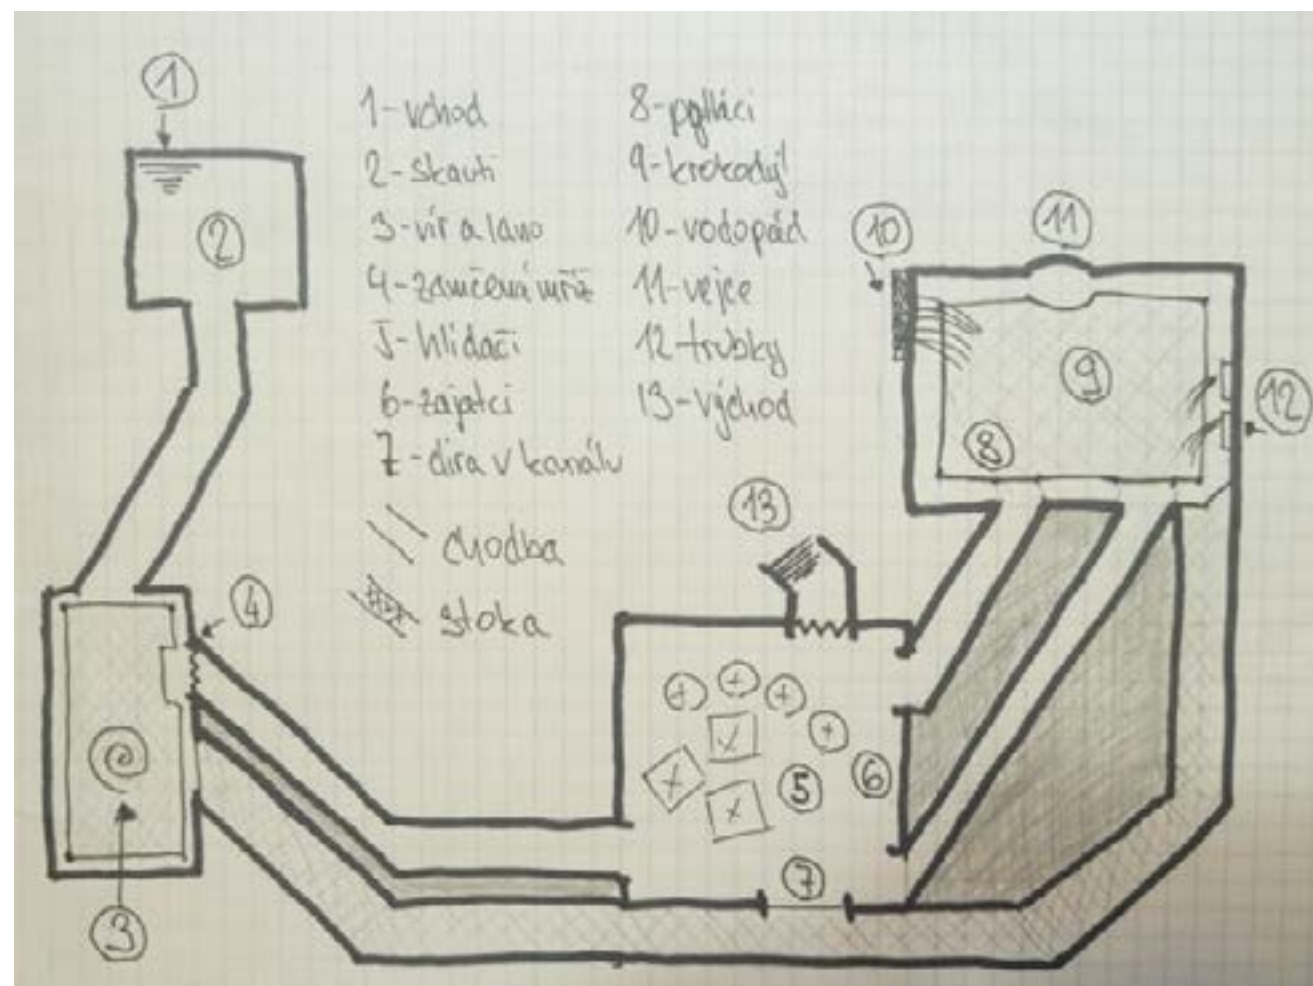 1
1-vchod
2-skauti
3-vír a lano
4-zamčená mříž
5-hlídači
6-zajatci
7-díra v kanálu
chodba
stoka
8-pytláci
9-krokodýl
10-vodopád
11-vejce
12-trubky
13-východ
2
10
11
9
12
8
13
4
5
6
7
3